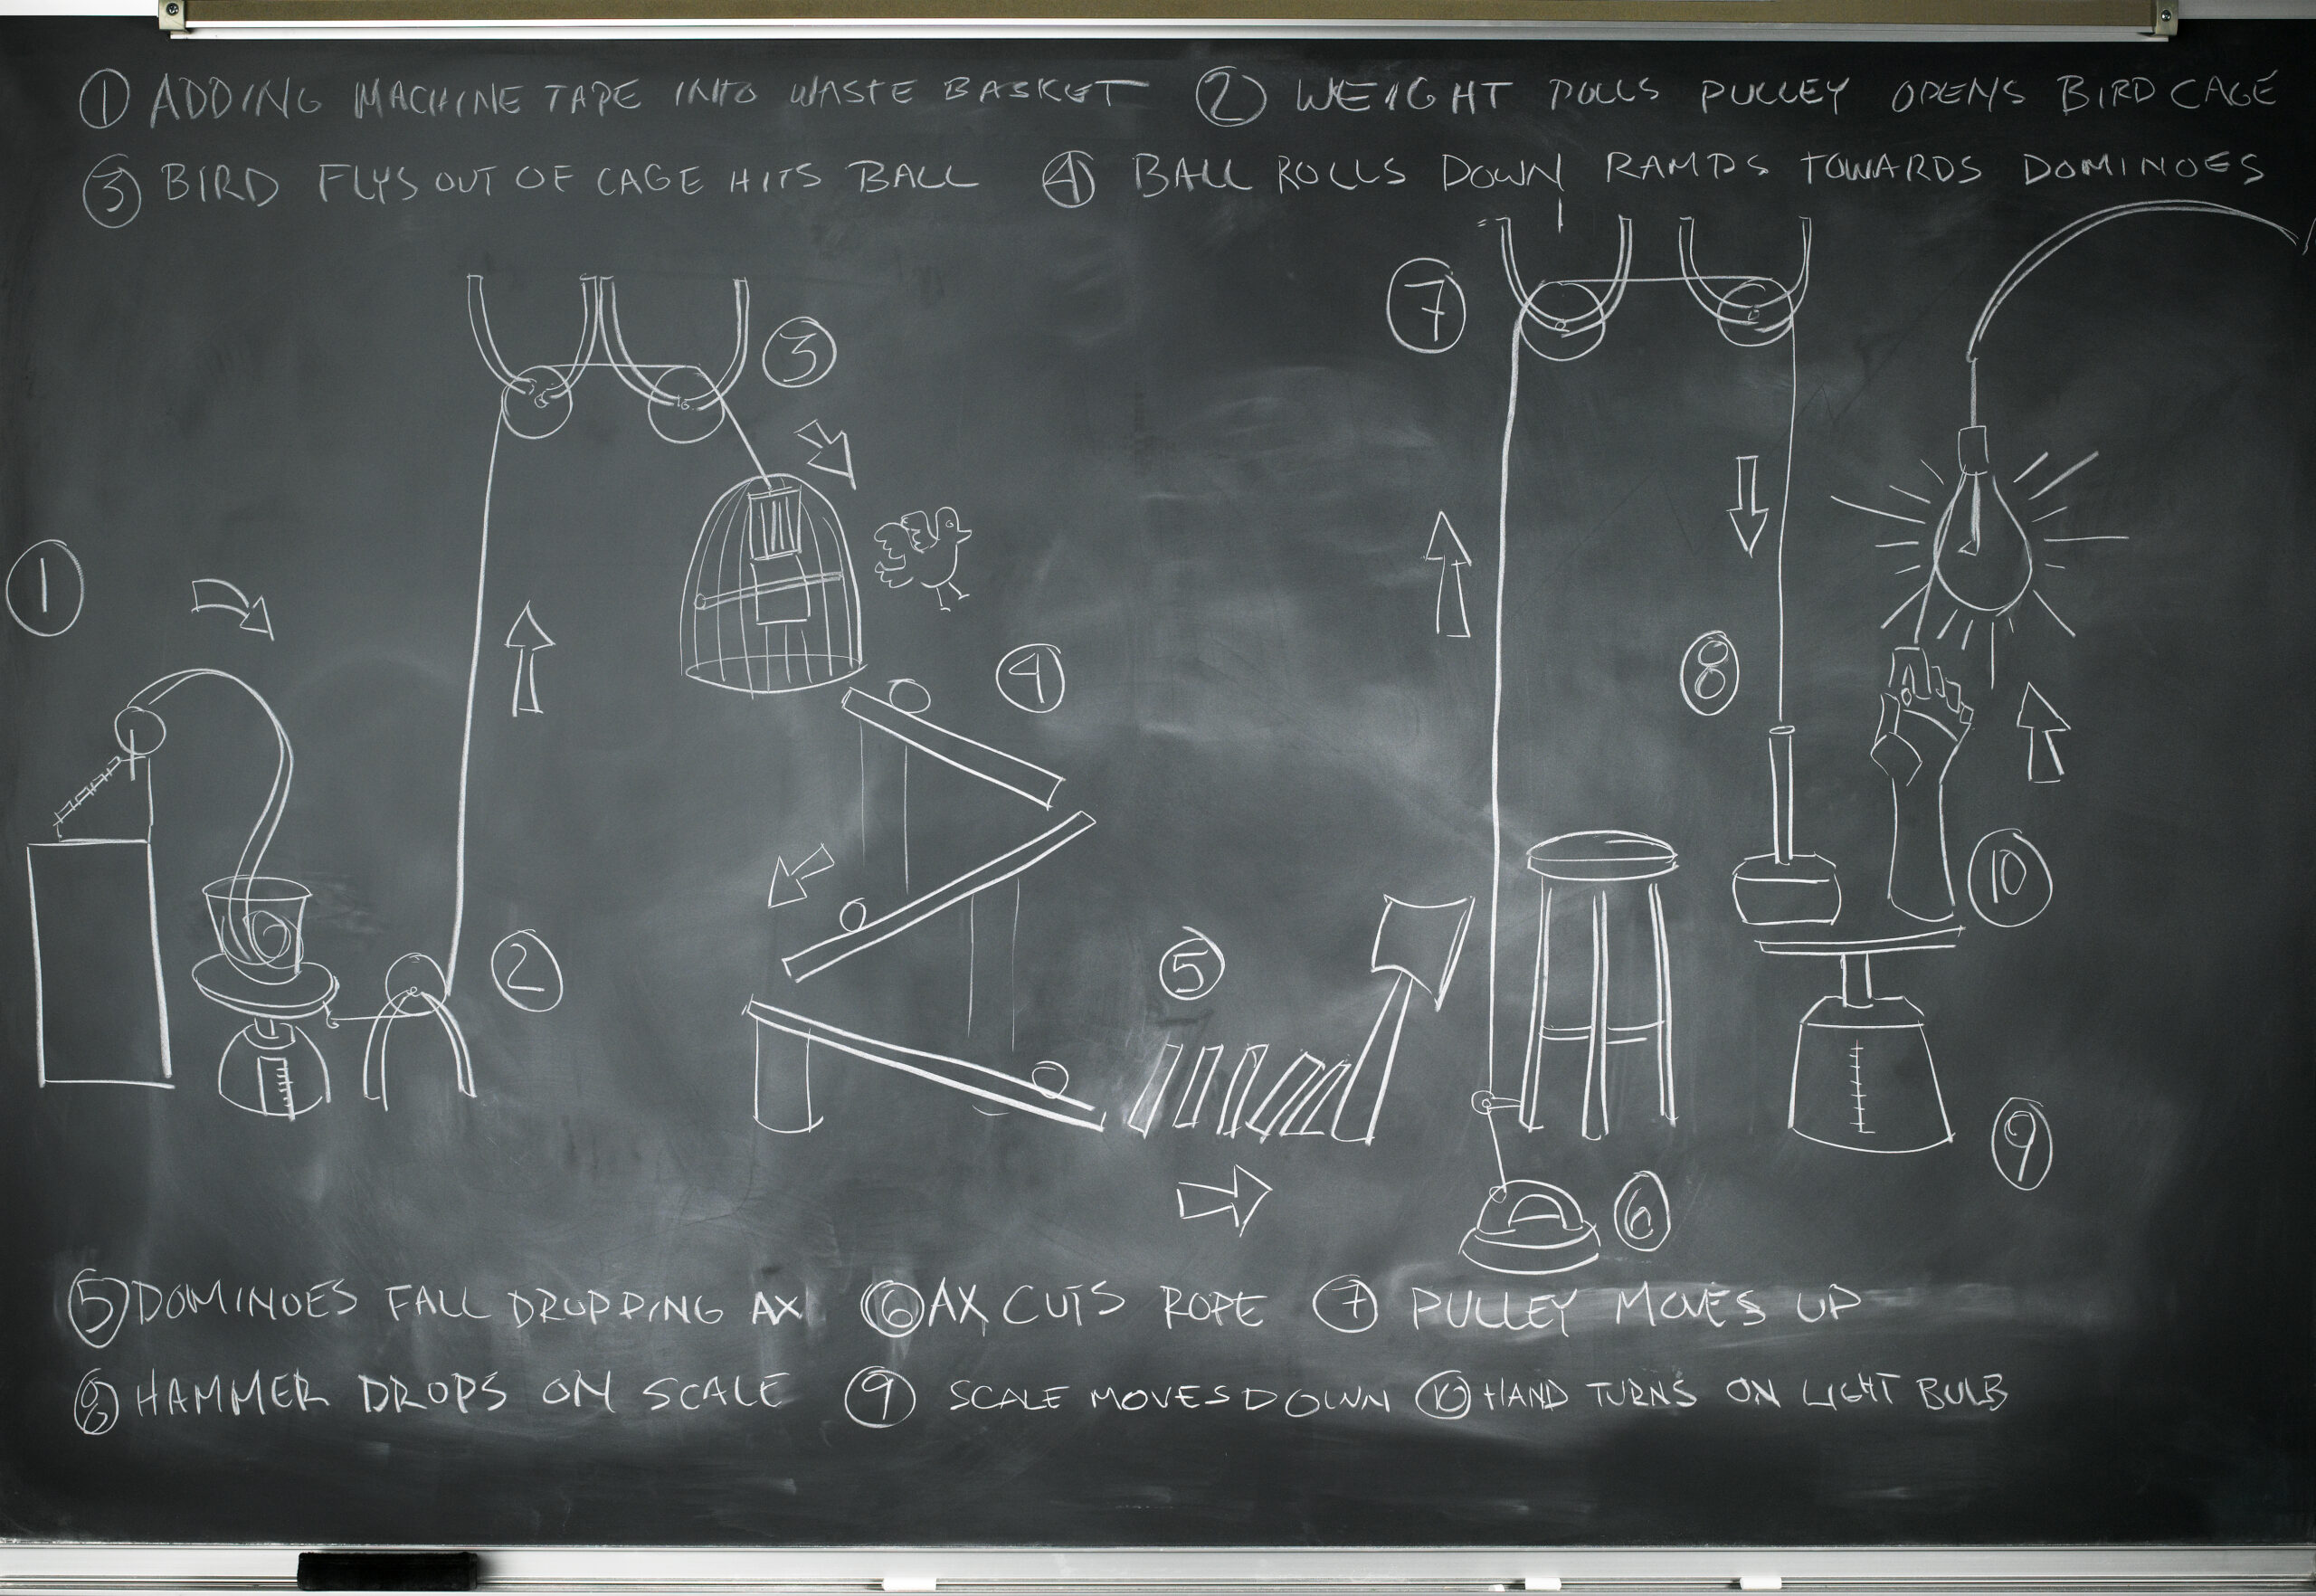 ① ADDING MACHINE TAPE INTO WASTE BASKET ② WEIGHT PULLS PULLEY OPENS BIRD CAGE
③ BIRD FLYS OUT OF CAGE HITS BALL ④ BALL ROLLS DOWN RAMPS TOWARDS DOMINOES
7
3
1
8
4
10
5
2
9
6
⑤ DOMINOES FALL DROPPING AX ⑥ AX CUTS ROPE ⑦ PULLEY MOVES UP
⑧ HAMMER DROPS ON SCALE ⑨ SCALE MOVES DOWN ⑩ HAND TURNS ON LIGHT BULB